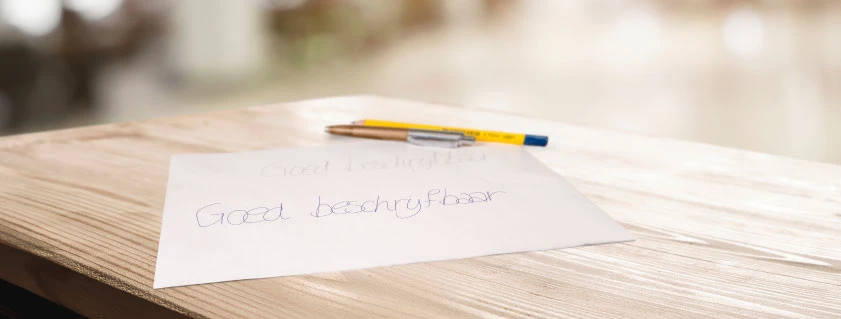 Goed beschryfbaar
Goed beschryfbaar